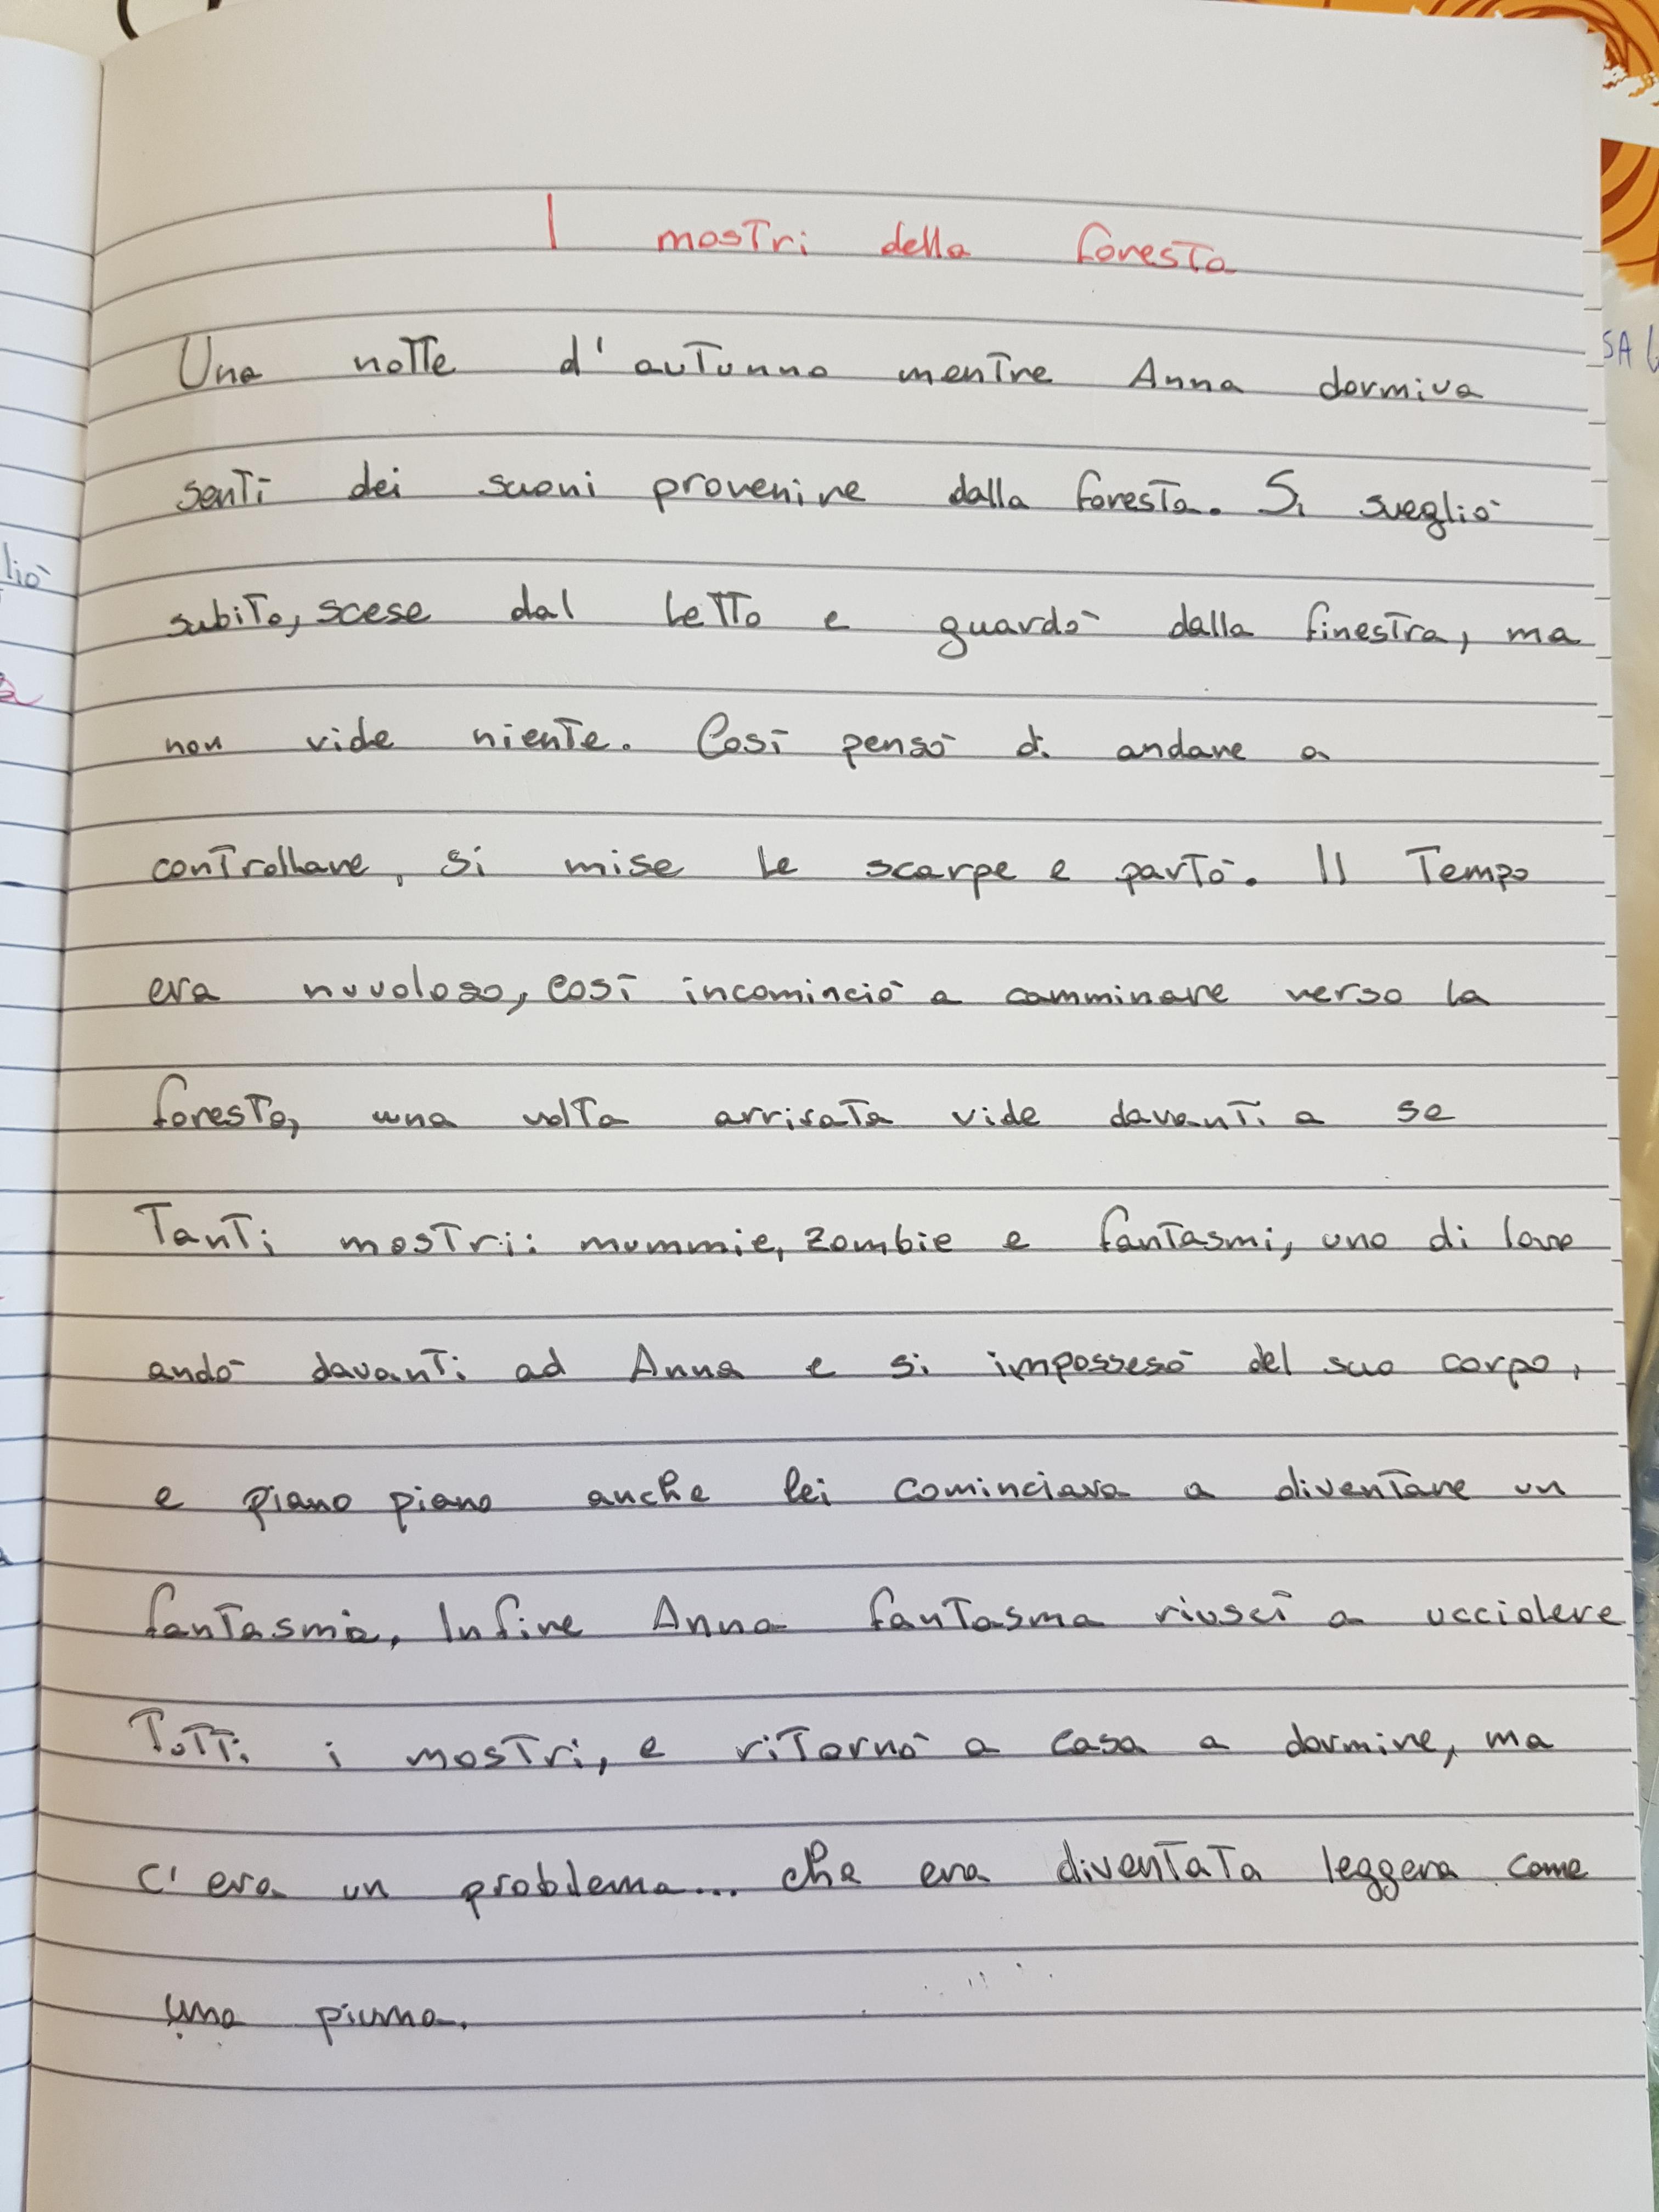 I mostri della foresta
Una notte d'autunno mentre Anna dormiva
sentì dei suoni provenire dalla foresta. Si svegliò
subito, scese dal letto e guardò dalla finestra, ma
non vide niente. Così pensò di andare a
controllare, si mise le scarpe e partò. Il Tempo
era nuvoloso, così incominciò a camminare verso la
foresta, una volta arrivata vide davanti a se
Tanti mostri: mummie, zombie e fantasmi, uno di loro
andò davanti ad Anna e si impossesò del suo corpo,
e piano piano anche lei cominciava a diventare un
fantasma. Infine Anna fantasma riuscì a uccidere
Tutti i mostri, e ritornò a casa a dormire, ma
c'era un problema... che era diventata leggera come
una piuma.
SA
liò